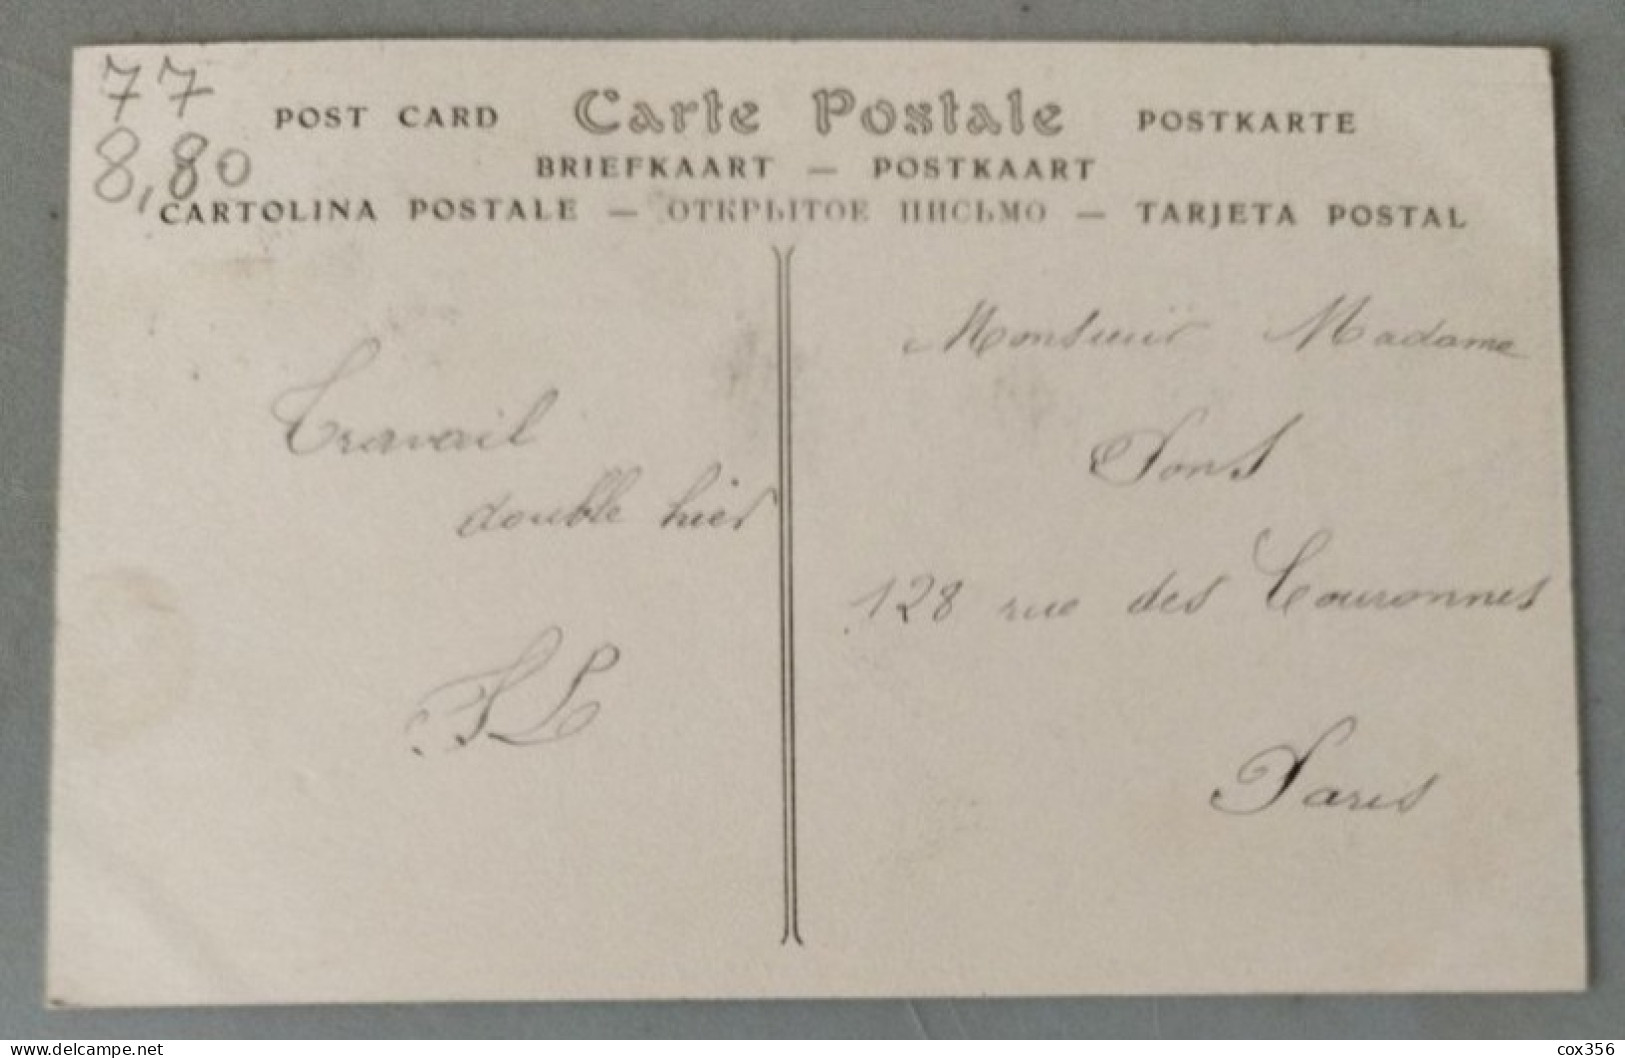 77
8,80
POST CARD Carte Postale POSTKARTE
BRIEFKAART — POSTKAART
CARTOLINA POSTALE — ОТКРЫТОЕ ПИСЬМО — TARJETA POSTAL
Travail
double hier
FL
Monsieur Madame
Pons
128 rue des Couronnes
Paris
delcampe.net
cox356